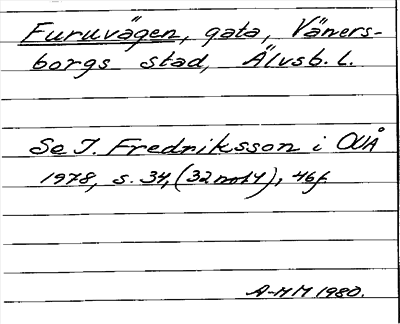 Furuvägen, gata, Väners-
borgs stad, Älvsb. l.
Se I. Fredriksson i OUÅ
1978, s. 34, (32 not 4), 46f.
A-MM 1980.